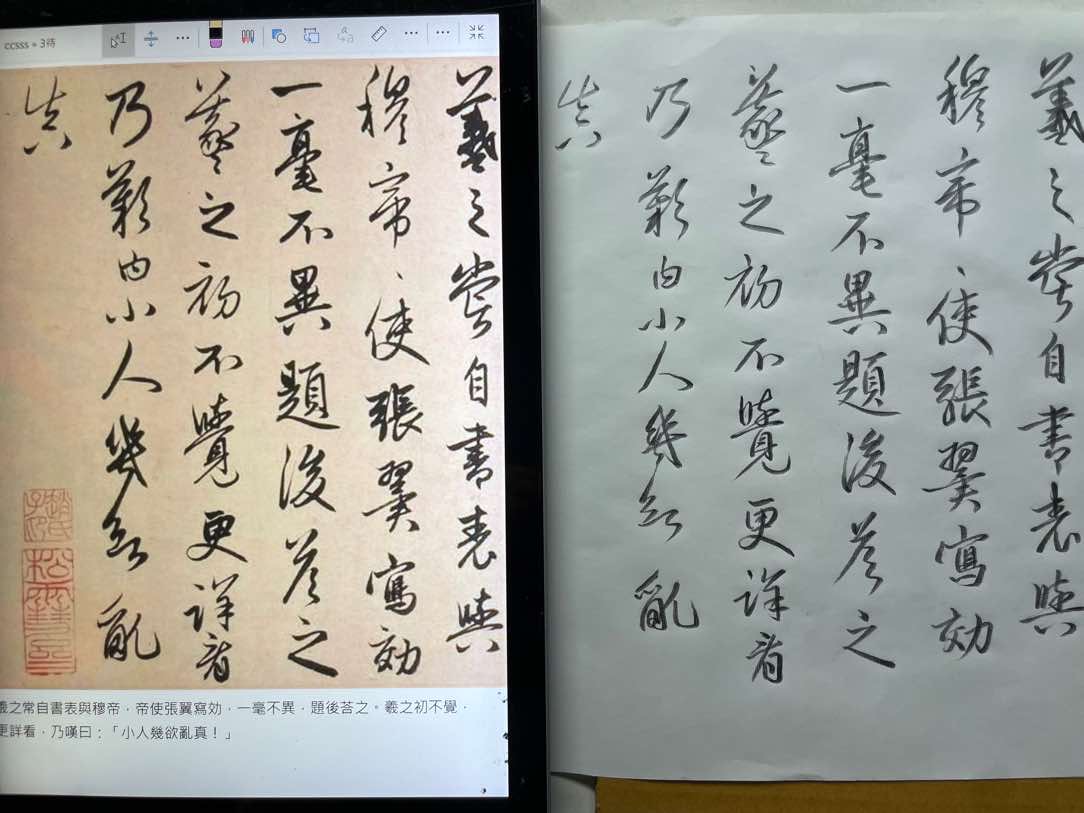 ccsss » 3待
羲之嘗自書表與
穆帝、使張翼寫効
一毫不異題後荅之
羲之初不覺更詳看
乃歎曰小人幾欲亂
真
羲之常自書表與穆帝，帝使張翼寫効，一毫不異，題後荅之。羲之初不覺，
更詳看，乃嘆曰：「小人幾欲亂真！」
羲之嘗自書表與
穆帝、使張翼寫効
一毫不異題後荅之
羲之初不覺更詳看
乃歎曰小人幾欲亂
真